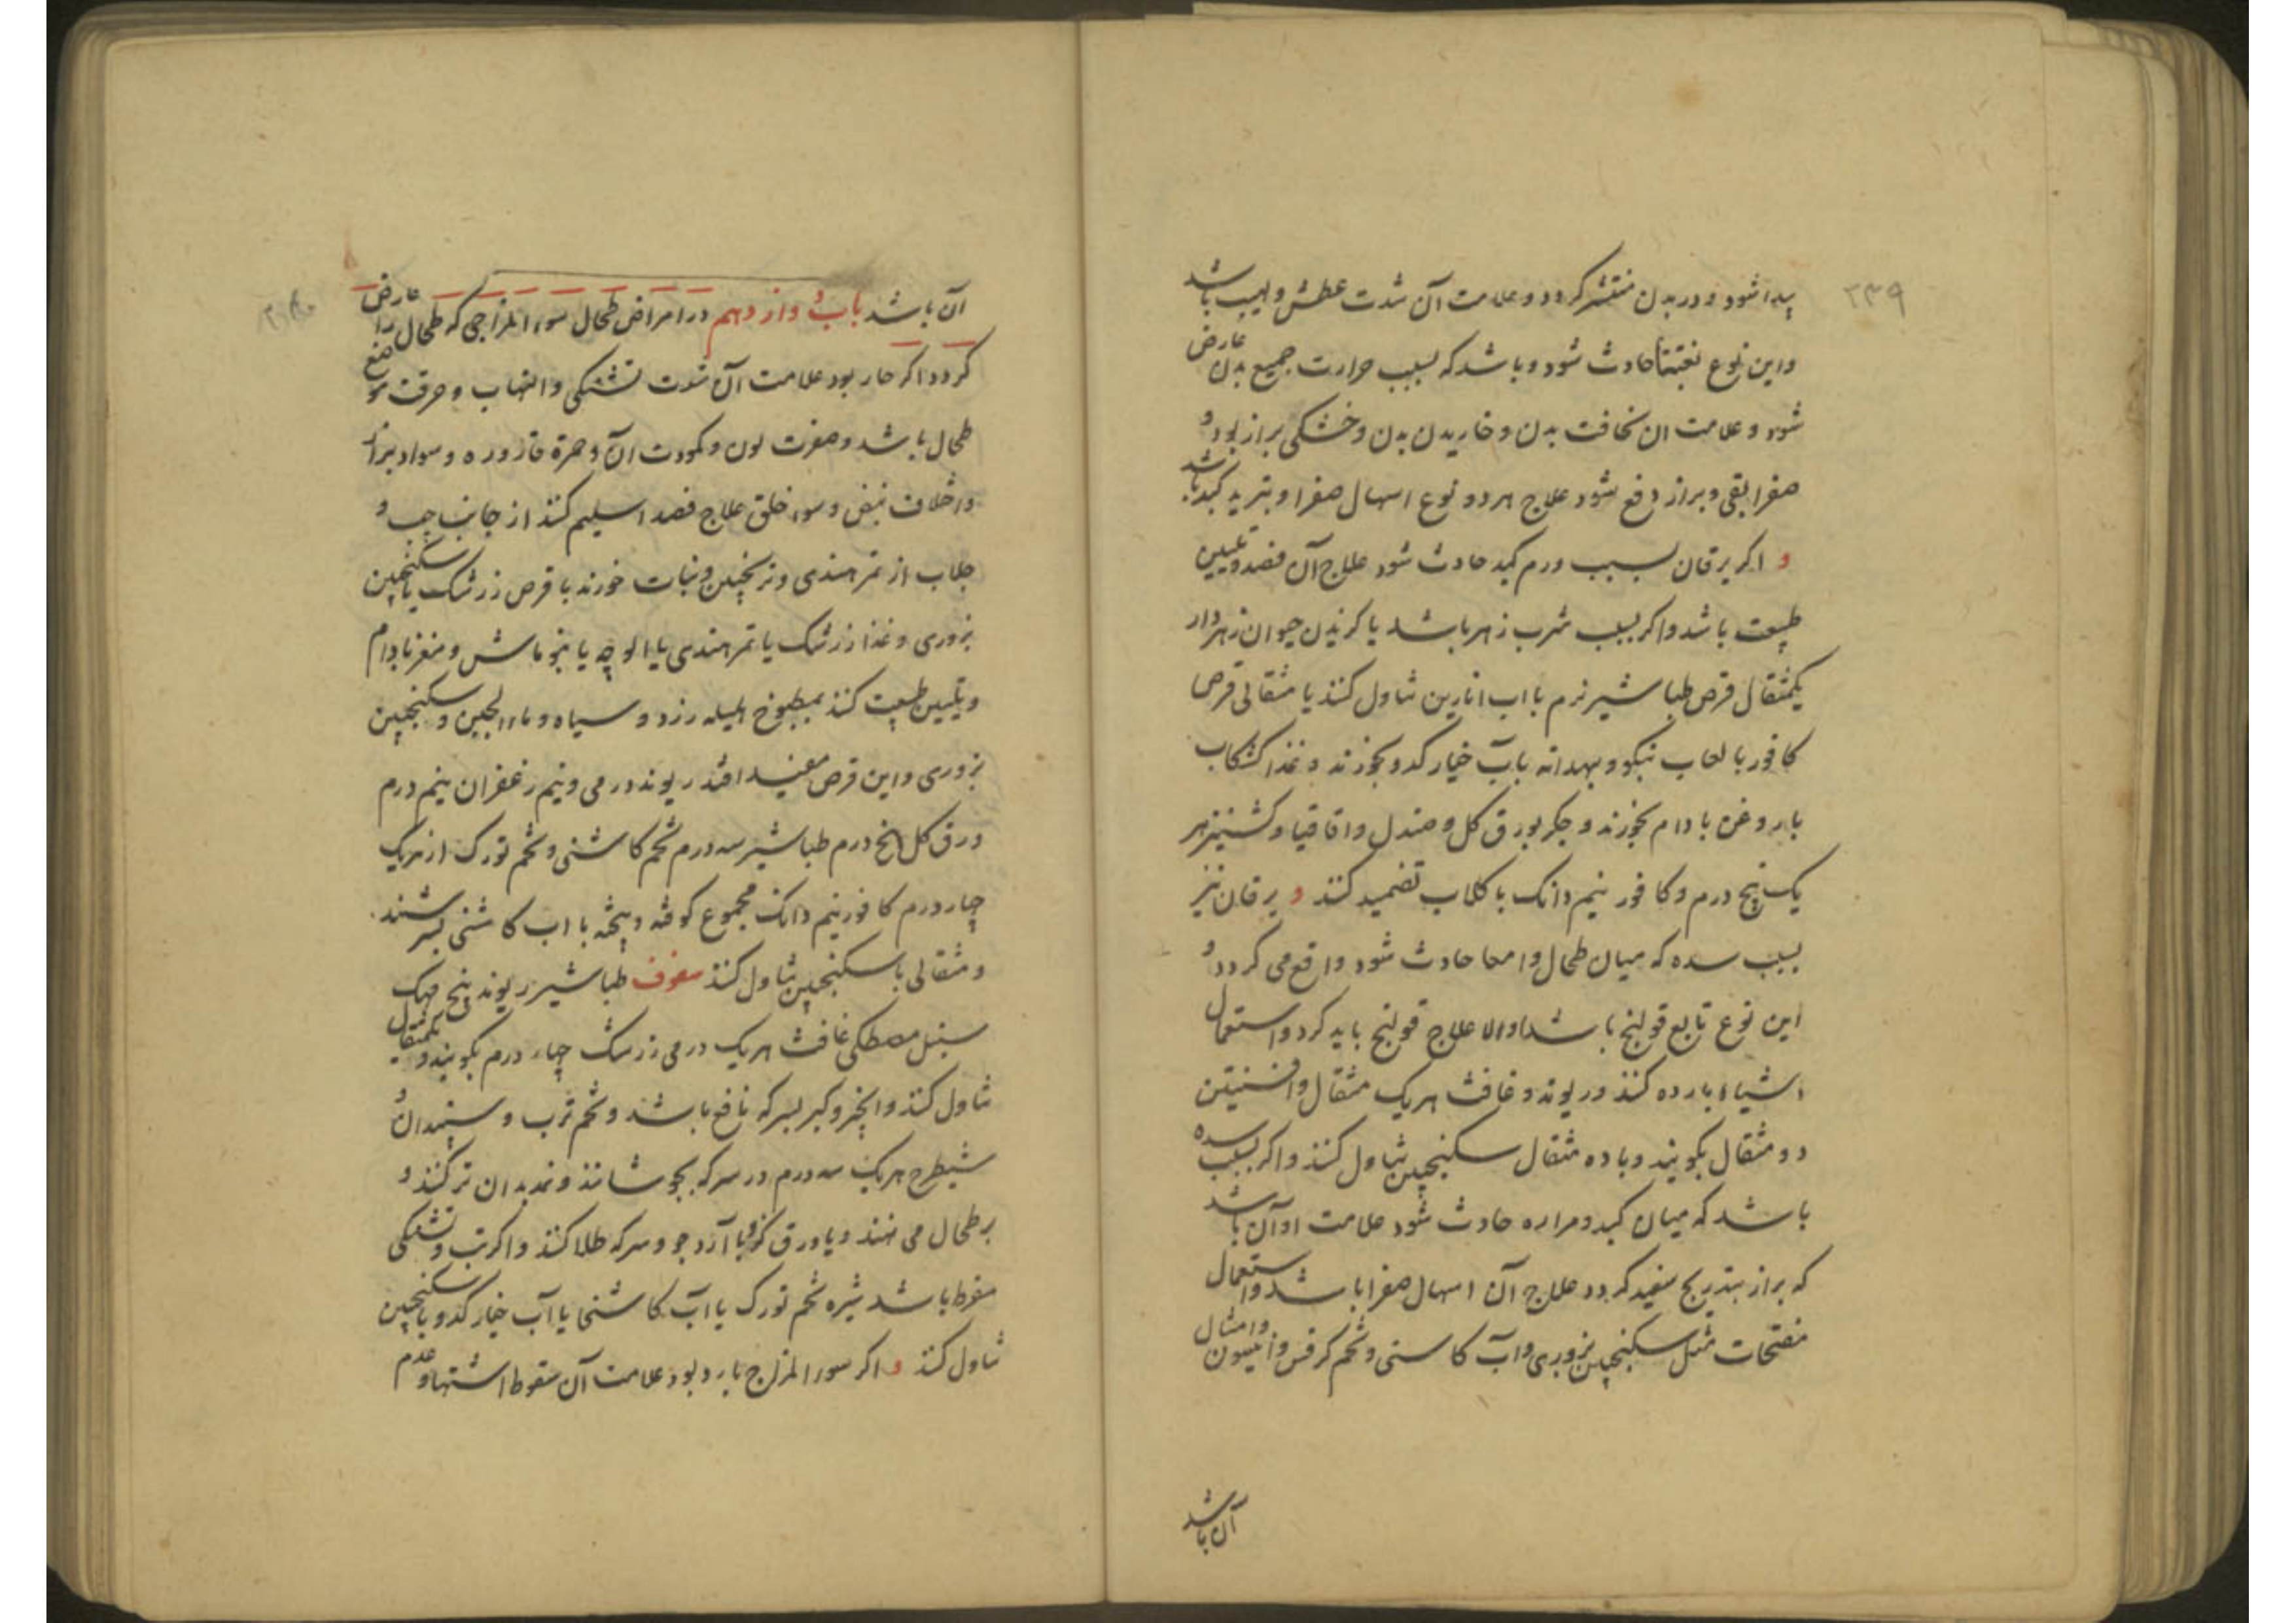 ۲۳۹
پیدا شود و در بدن منتشر کردد و علامت آن شدت عطش و لهیب باشد
و این نوع بغتتا حادث شود و باشد که بسبب حرارت جمیع بدن عارض
شود و علامت ان نحافت بدن و خاریدن بدن و خشکی براز بود و
صفرا بقی و براز دفع شود علاج هر دو نوع اسهال صفرا و تبرید کبد باشد
و اکر یرقان بسبب ورم کبد حادث شود علاج آن فصد و تلیین
طبیعت باشد و اکر بسبب شرب زهر باشد یا کزیدن حیوان زهردار
یکمثقال قرص طباشیر نرم با اب انارین تناول کنند یا مثقالی قرص
کافور با لعاب بنکو و بهدانه بآب خیار کدو بخورند و غذا کشکاب
با روغن بادام بخورند و جکر بورق کل و صندل و اقاقیا و کشنیز هر
یک پنج درم و کافور نیم دانک با کلاب تضمید کنند و یرقان نیز
بسبب سده که میان طحال و امعا حادث شود واقع می کردد و
این نوع تابع قولنج باشد اولا علاج قولنج باید کرد و استعمال
اشیاء بارده کنند و ریوند و غافث هر یک مثقال و افسنتین
دو مثقال بکوبند و با ده مثقال سکنجبین تناول کنند و اکر بسبب سده
باشد که میان کبد و مراره حادث شود علامت او آن باشد
که براز بتدریج سفید کردد علاج آن اسهال صفرا باشد و استعمال
مفتحات مثل سکنجبین بزوری و آب کاسنی و تخم کرفس و انیسون و امثال
آن باشد
آن باشد باب دوازدهم در امراض طحال سوء المزاجی که طحال را عارض
کردد اکر حار بود علامت آن شدت تشنکی و التهاب و حرقت موضع
طحال باشد و صفرت لون و کمودت آن و حمرة قازوره و سواد براز
و اختلاف نبض و سوء خلق علاج فصد اسلیم کنند از جانب چپ و
جلاب از تمر هندی و ترنجبین و نبات خورند با قرص زرشک یا سکنجبین
بزوری و غذا زرشک یا تمر هندی یا الوچه یا بنخو ماش و مغز بادام
و تلیین طبیعت کنند بمطبوخ هلیله زرد و سیاه و ماء الجبن و سکنجبین
بزوری و این قرص مفید افتد ریوند درمی و نیم زعفران نیم درم
ورق کل پنج درم طباشیر سه درم تخم کاشنی و تخم تورک از هر یک
چهار درم کافور نیم دانک مجموع کوفته و بیخته با اب کاشنی بسرشند
و مثقالی با سکنجبین تناول کنند سفوف طباشیر ریوند پنج مهک
سنبل مصطکی غافث هر یک درمی زرشک چهار درم بکوبند و یکمثقال
تناول کنند و انجیر و کبر بسرکه نافع باشند و تخم ترب و سپندان و
شیطرج هر یک سه درم در سرکه بجوشانند و نمد بدان تر کنند و
بر طحال می نهند و یا ورق کز و یا آرد جو و سرکه طلا کنند و اکر تب و تشنکی
مفرط باشد شیره تخم تورک یا اب کاشنی یا آب خیار کدو با سکنجبین
تناول کنند و اکر سوء المزاج بارد بود علامت آن سقوط اشتها و عدم